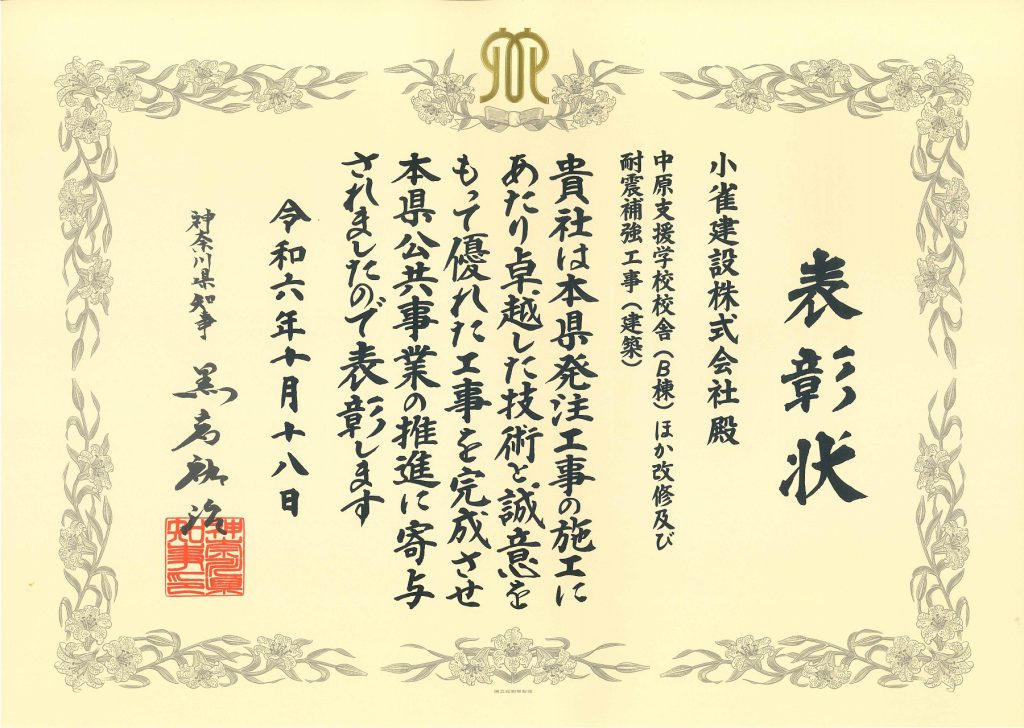 表彰状
小雀建設株式会社殿
中原支援学校校舎(B棟)ほか改修及び
耐震補強工事(建築)
貴社は本県発注工事の施工に
あたり卓越した技術と誠意を
もって優れた工事を完成させ
本県公共事業の推進に寄与
されましたので表彰します
令和六年十月十八日
神奈川県知事
黒岩祐治
神奈川県
知事之印